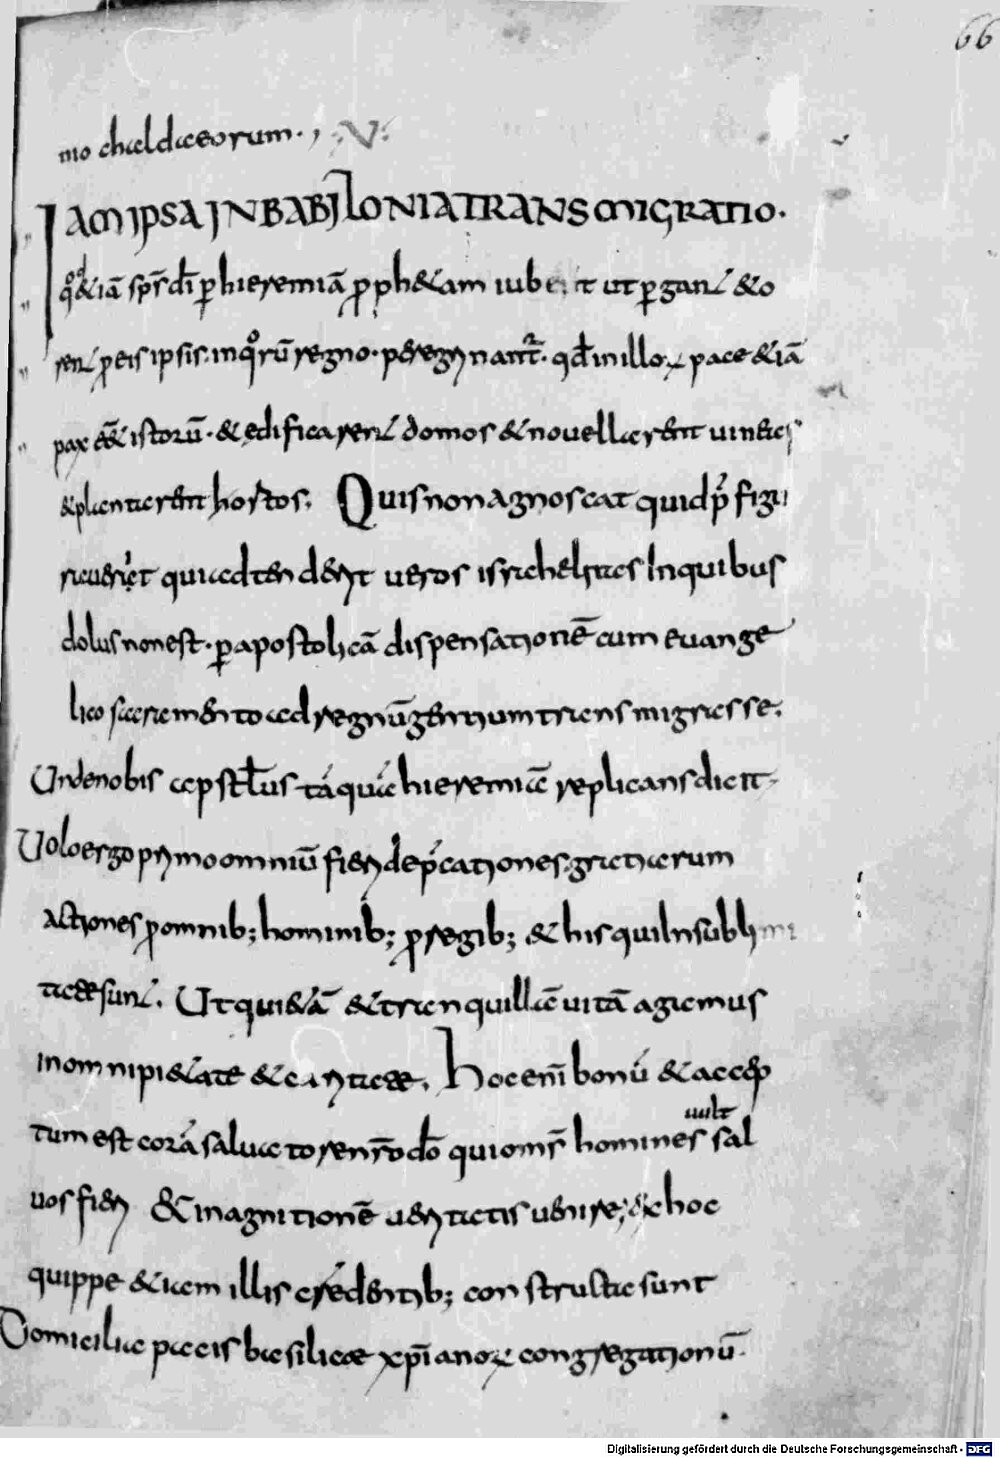 66
mo chaldaeorum.
IAM IPSA IN BABILONIA TRANSMIGRATIO.
quo &iã sp̄s dī ꝑ hieremiã ꝓph&am iub t ut ꝑgant &o
rent ꝓ eis ipsis. in quorũ regno. peregrinant̃. qđ in illoꝝ pace &iã
pax eẽt istorũ. & ędificarent domos & nouellarent uineas
&plantarent hortos. Quis non agnoscat quid p̄figu
rauerit qui adtenderit ueros israhelitas In quibus
dolus non est. ꝑ apostolicã dispensationẽ cum euange
lico sacramento ad regnũ gentium transmigrasse.
Unde nobis apostl̄us tã quã hieremiã replicans dicit
Uolo ergo primo omniũ fieri dep̄cationes. gratiarum
actiones ꝓ omnib; hominib; ꝓ regib; & his qui In subli
tate sunt. Ut qui&ã & tranquillã uitã agamus
in omni pi&ate & caritate. Hoc enĩ bonũ & accep
tum est corã saluatore nr̄o dō qui oms̄ homines sal
uult
uos fieri & in agnitionẽ ueritatis uenire; ex hoc
quippe &iam illis credentib; constructa sunt
Domicilia pacis basilicae xp̄ianoꝝ congregationũ.
Digitalisierung gefördert durch die Deutsche Forschungsgemeinschaft - DFG